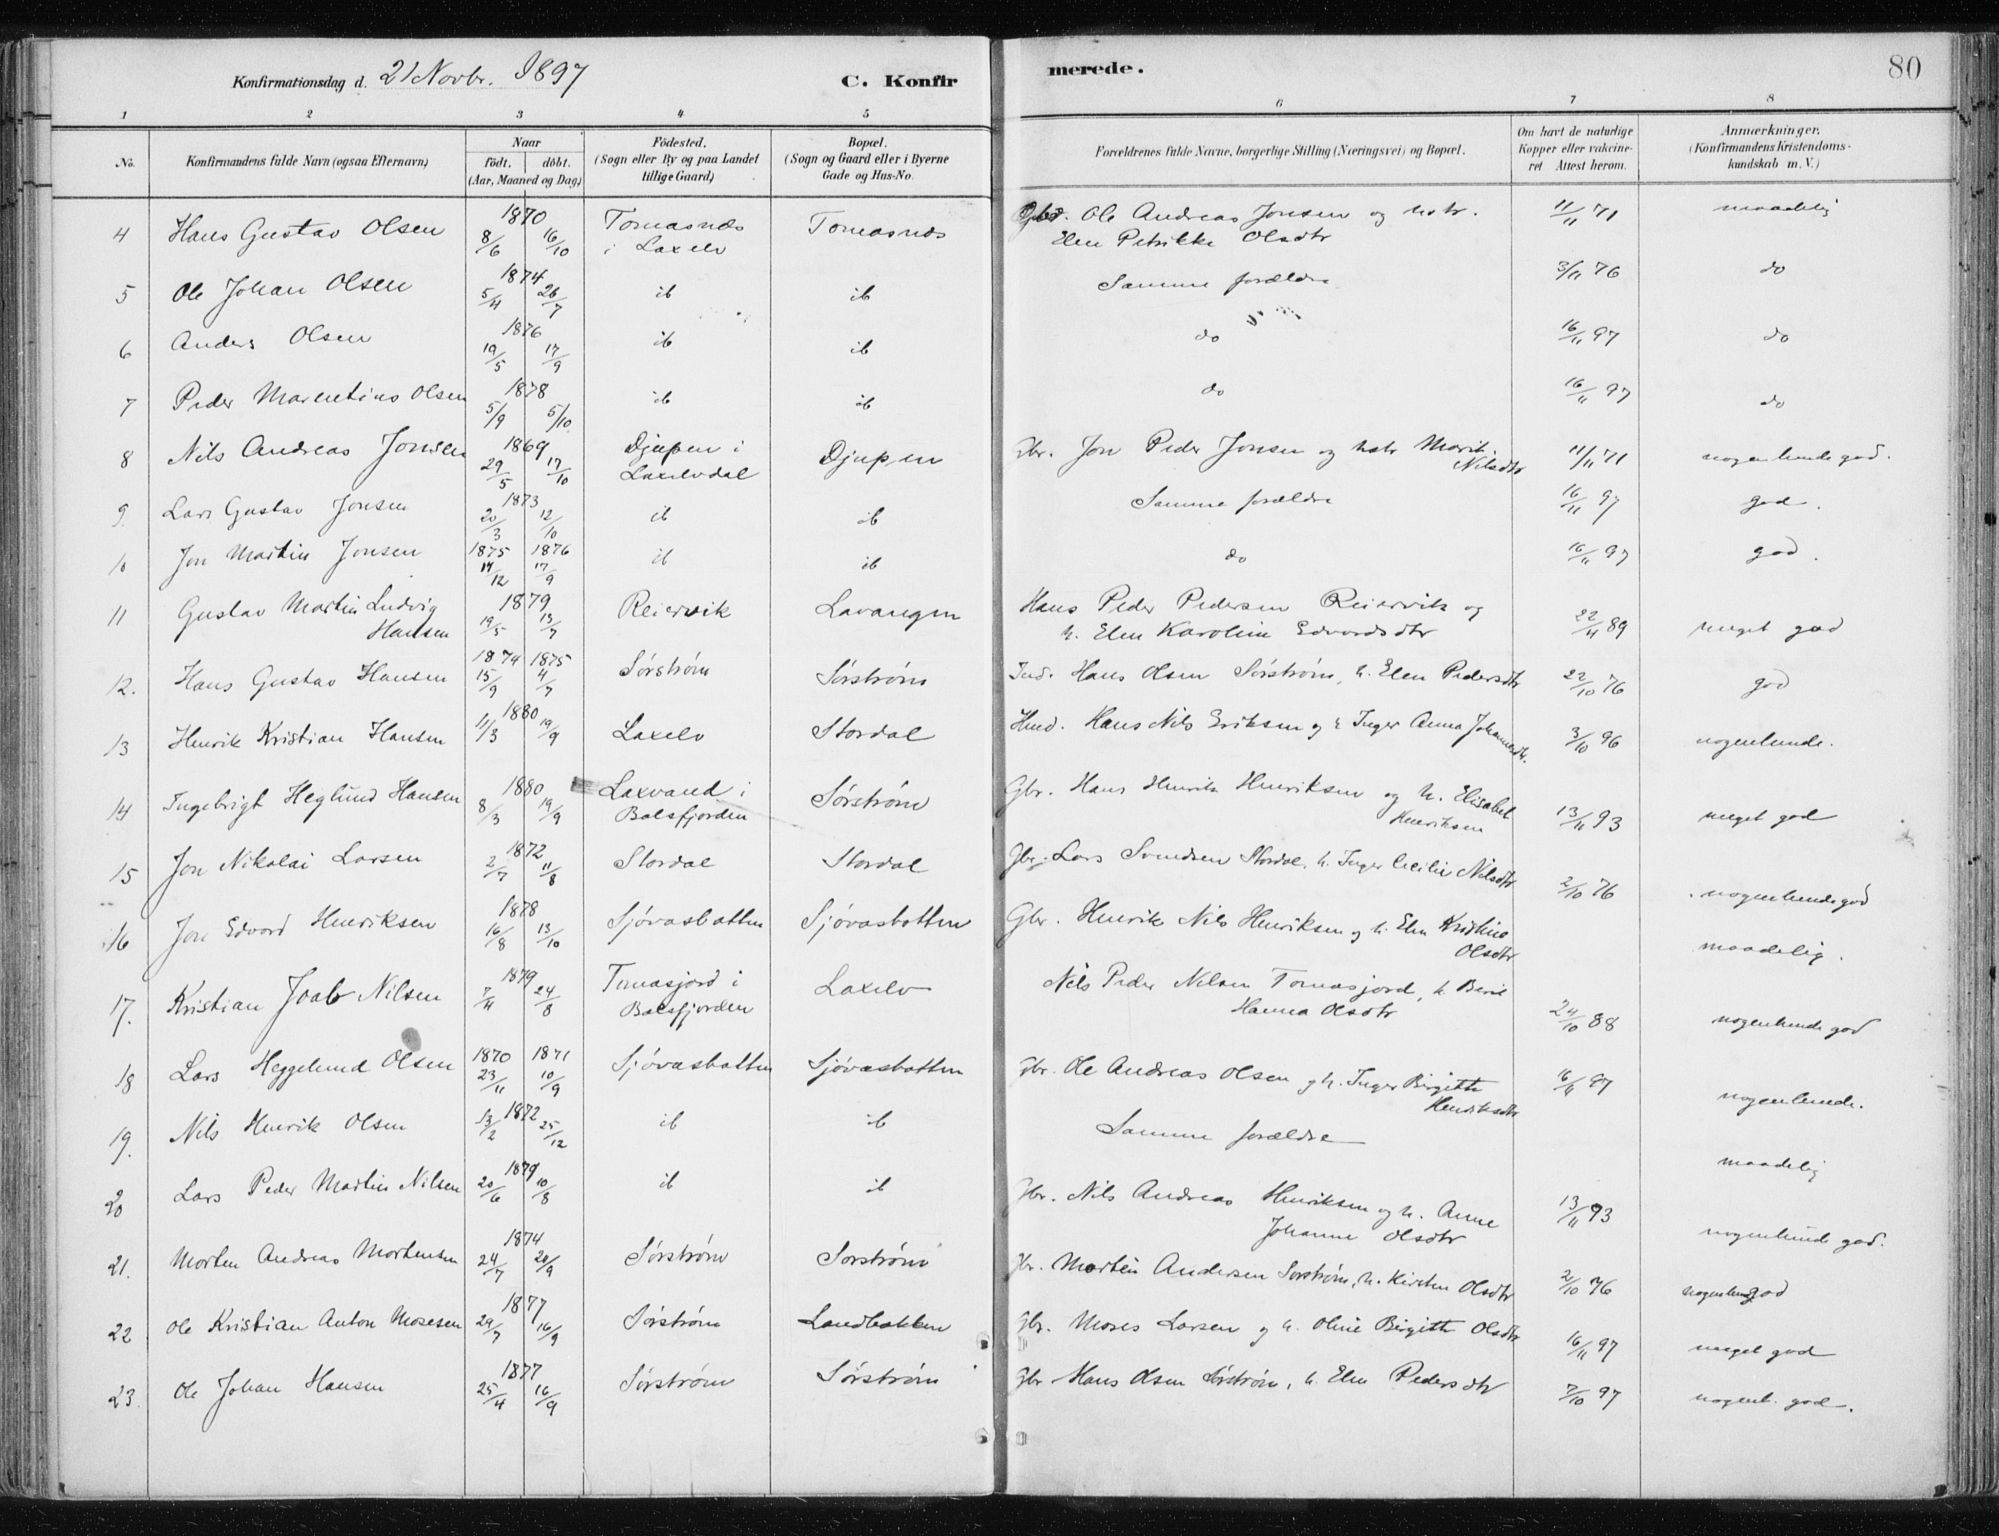 Konfirmationsdag d. 21 Novbr. 1897 C. Konfirmerede. 80
1 2 3 4 5 6 7 8
No. Konfirmandens fulde Navn (ogsaa Efternavn) Naar födt. döbt. (Aar, Maaned og Dag.) Födested. (Sogn eller By og paa Landet tillige Gaard) Bopæl. (Sogn og Gaard eller i Byerne Gade og Hus-No. Forældrenes fulde Navne, borgerlige Stilling (Næringsvei) og Bopæl. Om havt de naturlige Kopper eller vakcineret Attest herom. Anmærkninger. (Konfirmandens Kristendomskundskab m. V.)
4 Hans Gustav Olsen 1870 8/6 16/10 Tomasnæs i Laxelv Tomasnæs Ole Andreas Jonsen og hstr. Elen Petrikke Olsdtr 11/11 71 maadelig
5 Ole Johan Olsen 1874 5/4 26/7 ib ib Samme forældre 3/11 76 do
6 Anders Olsen 1876 19/5 17/9 ib ib do 16/11 97 do
7 Peder Marentius Olsen 1878 5/9 5/10 ib ib do 16/11 97 do
8 Nils Andreas Jonsen 1869 29/5 17/10 Djupen i Laxelvdal Djupen Gbr. Jon Peder Jonsen og hstr Marit Nilsdtr 11/11 71 nogenlunde god.
9. Lars Gustav Jonsen 1873 20/3 12/10 ib ib Samme forældre 16/11 97 god.
10 Jon Martin Jonsen 1875 14/12 1876 17/9 ib ib do 16/11 97 god.
11 Gustav Martin Ludvig Hansen 1879 19/5 13/7 Reiervik Lavangen Hans Peder Pedersen Reiervik og h. Elen Karoline Edvardsdtr 22/4 89 meget god
12. Hans Gustav Hansen 1874 15/9 1875 4/7 Sørstrøm Sørstrøm Ind. Hans Olsen Sørstrøm, h. Elen Pedersdtr 22/10 76 god
13 Henrik Kristian Hansen 1880 11/3 19/9 Laxelv Stordal Hmd. Hans Nils Eriksen og h Inger Anna Johannesdtr. 3/10 96 nogenlunde.
14 Ingebrigt Heglund Hansen 1880 8/3 19/9 Laxvand i Balsfjorden Sørstrøm Gbr. Hans Henrik Henriksen og h. Elisabet Henriksen 13/11 93 meget god
15 Jon Nikolai Larsen 1872 2/7 11/8 Stordal Stordal Gbr. Lars Svendsen Stordal, h. Inger Cecilie Nilsdtr 2/10 76 nogenlunde god
16 Jon Edvard Henriksen 1878 16/8 13/10 Sjövasbotten Sjövasbotten Gbr. Henrik Nils Henriksen og h. Elen Kristine Olsdtr maadelig.
17. Kristian Joab Nilsen 1879 7/4 24/8 Tomasjord i Balsfjorden Laxelv Nils Peder Nilsen Tomasjord, h. Berit Hanna Olsdtr 24/10 88 nogenlunde god
18 Lars Heggelund Olsen 1870 23/11 1871 10/9 Sjövasbotten Sjövasbotten Gbr. Ole Andreas Olsen og h. Inger Birgitte Henriksdtr 16/11 97 nogenlunde.
19. Nils Henrik Olsen 1872 13/2 25/12 ib ib Samme forældre maadelig
20 Lars Peder Martin Nilsen 1879 20/6 10/8 ib ib Gbr. Nils Andreas Henriksen og h. Anne Johanne Olsdtr 13/11 93 nogenlunde god.
21. Morten Andreas Mortensen 1874 24/7 20/9 Sørstrøm Sørstrøm Gbr. Morten Andersen Sørstrøm, h. Kirsten Olsdtr 2/10 76 nogenlunde god
22 Ole Kristian Anton Mosesen 1877 29/7 16/9 Sørstrøm Sandbakken Gbr. Moses Larsen og h. Oline Birgitte Olsdtr 16/11 97 meget god
23. Ole Johan Hansen 1877 25/4 16/9 Sørstrøm Sørstrøm Gbr Hans Olsen Sørstrøm, h. Elen Pedersdtr 7/10 97 nogenl. god.